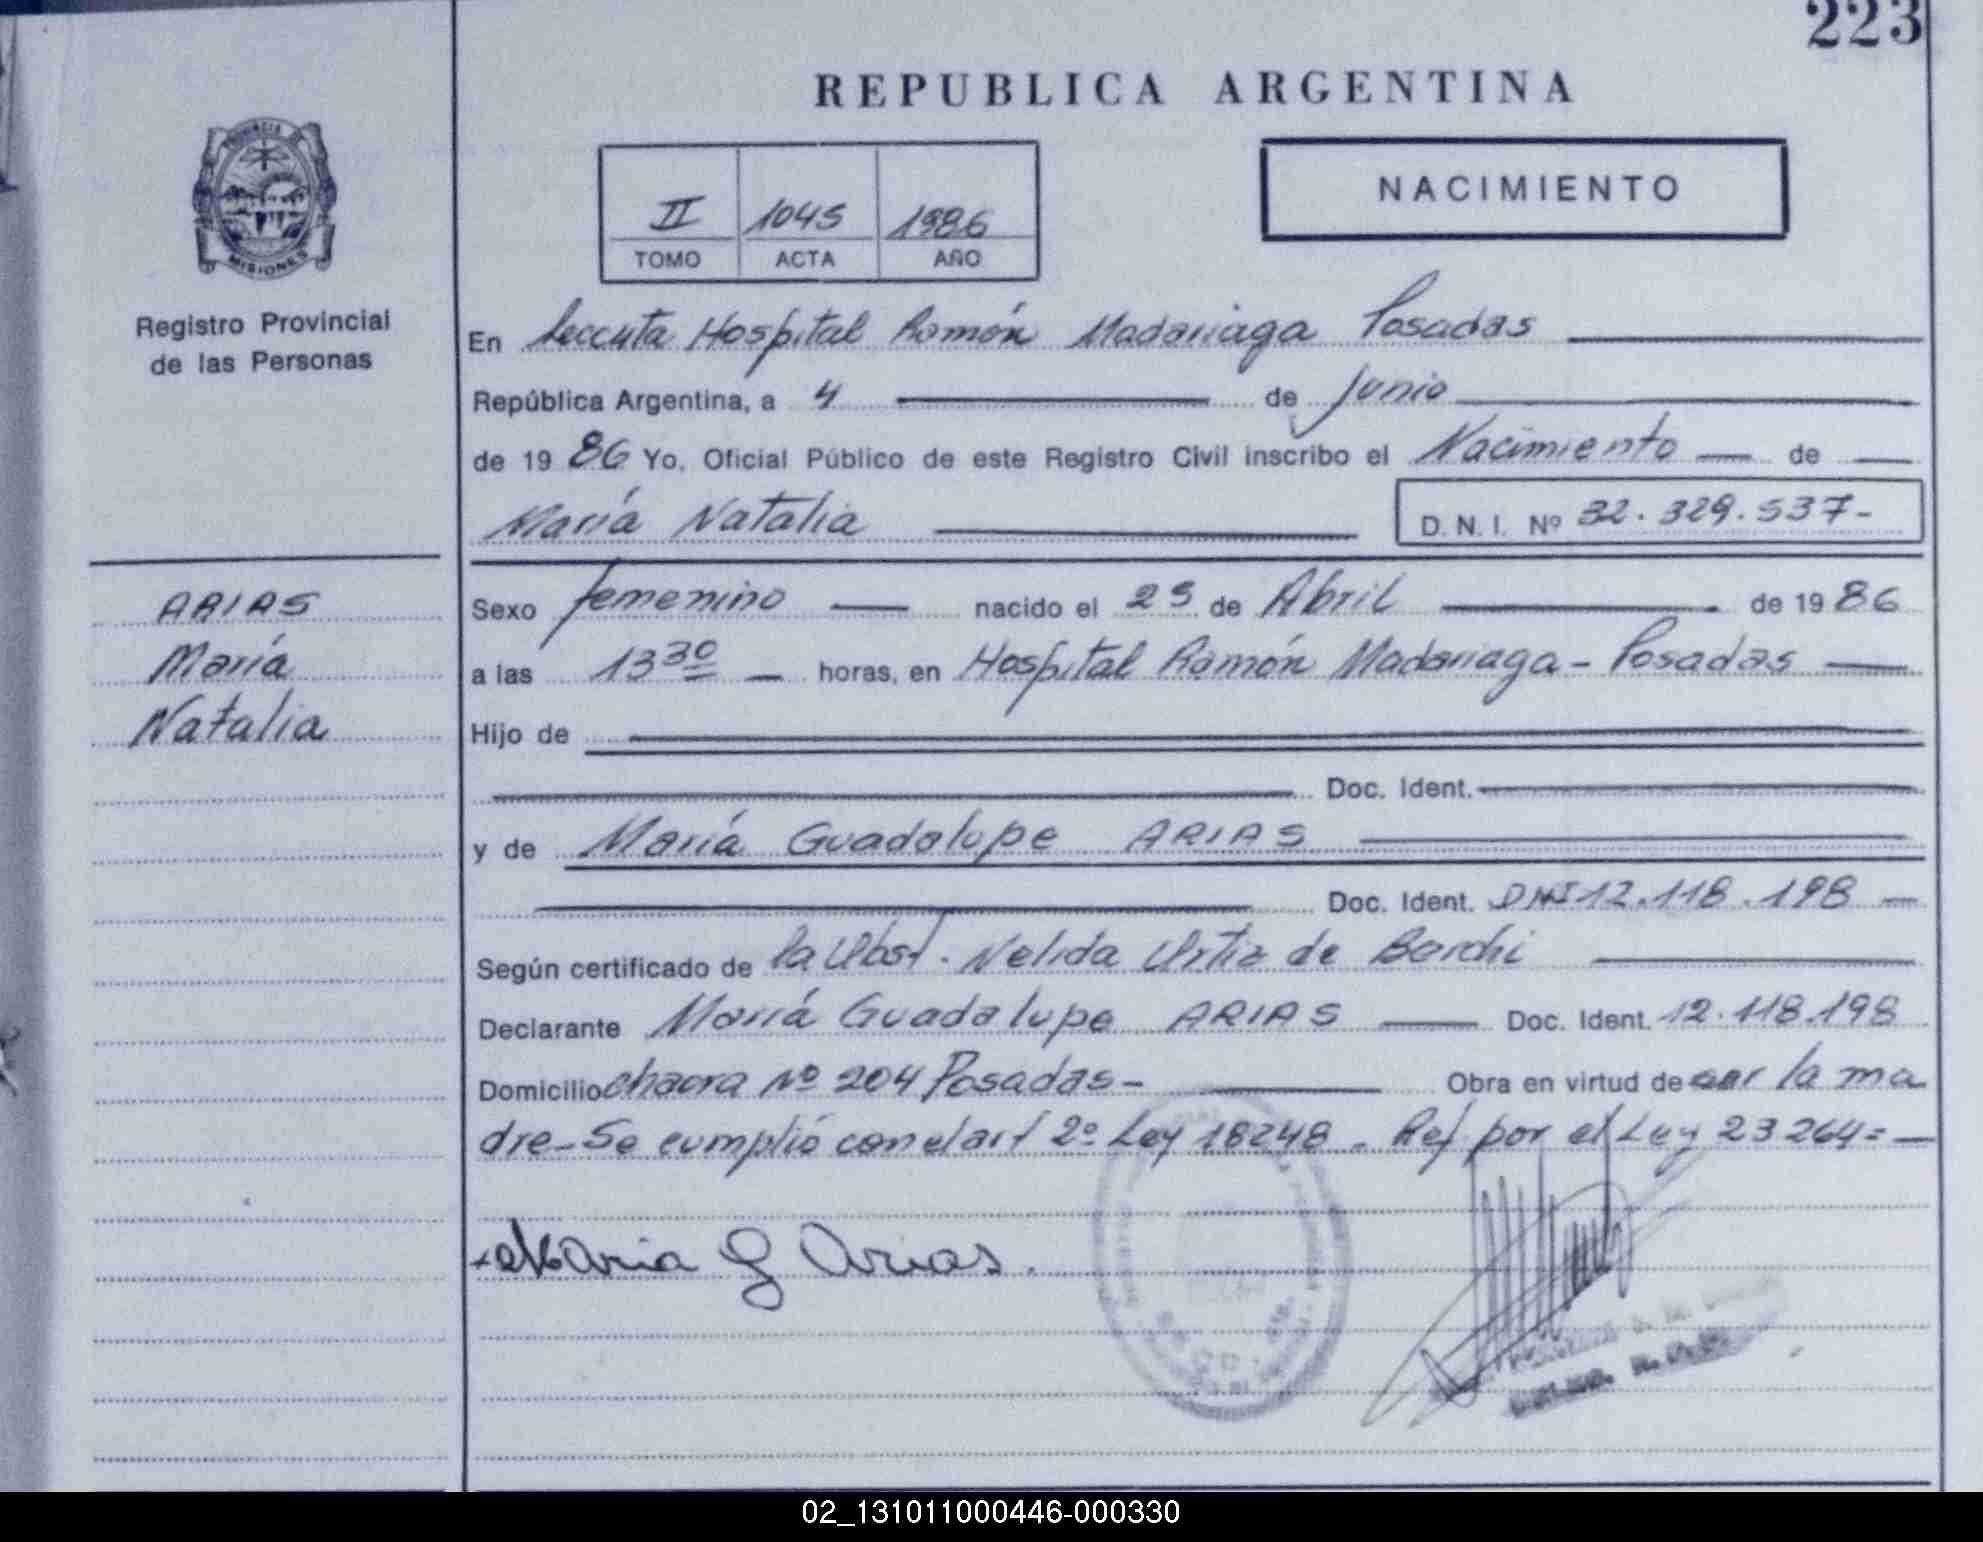 223
REPUBLICA ARGENTINA
PROVINCIA DE
MISIONES
Registro Provincial
de las Personas
II 1045 1986
TOMO ACTA AÑO
NACIMIENTO
En Seccuta Hospital Ramón Madariaga Posadas
República Argentina, a 4 de Junio
de 19 86 Yo, Oficial Público de este Registro Civil inscribo el Nacimiento — de —
María Natalia
D. N. I. Nº 32.329.537-
ARIAS
María
Natalia
Sexo femenino — nacido el 25 de Abril de 19 86
a las 13 30 — horas, en Hospital Ramón Madariaga - Posadas —
Hijo de
Doc. Ident.
y de María Guadalupe ARIAS
Doc. Ident. DNI 12.118.198 —
Según certificado de la Obst. Nelida Ortiz de Barchi
Declarante María Guadalupe ARIAS — Doc. Ident. 12.118.198
Domicilio chacra Nº 204 Posadas - Obra en virtud de ser la ma
dre - Se cumplió con el art 2º Ley 18248 - Ref por el Ley 23264= —
Maria G Arias.
02_131011000446-000330